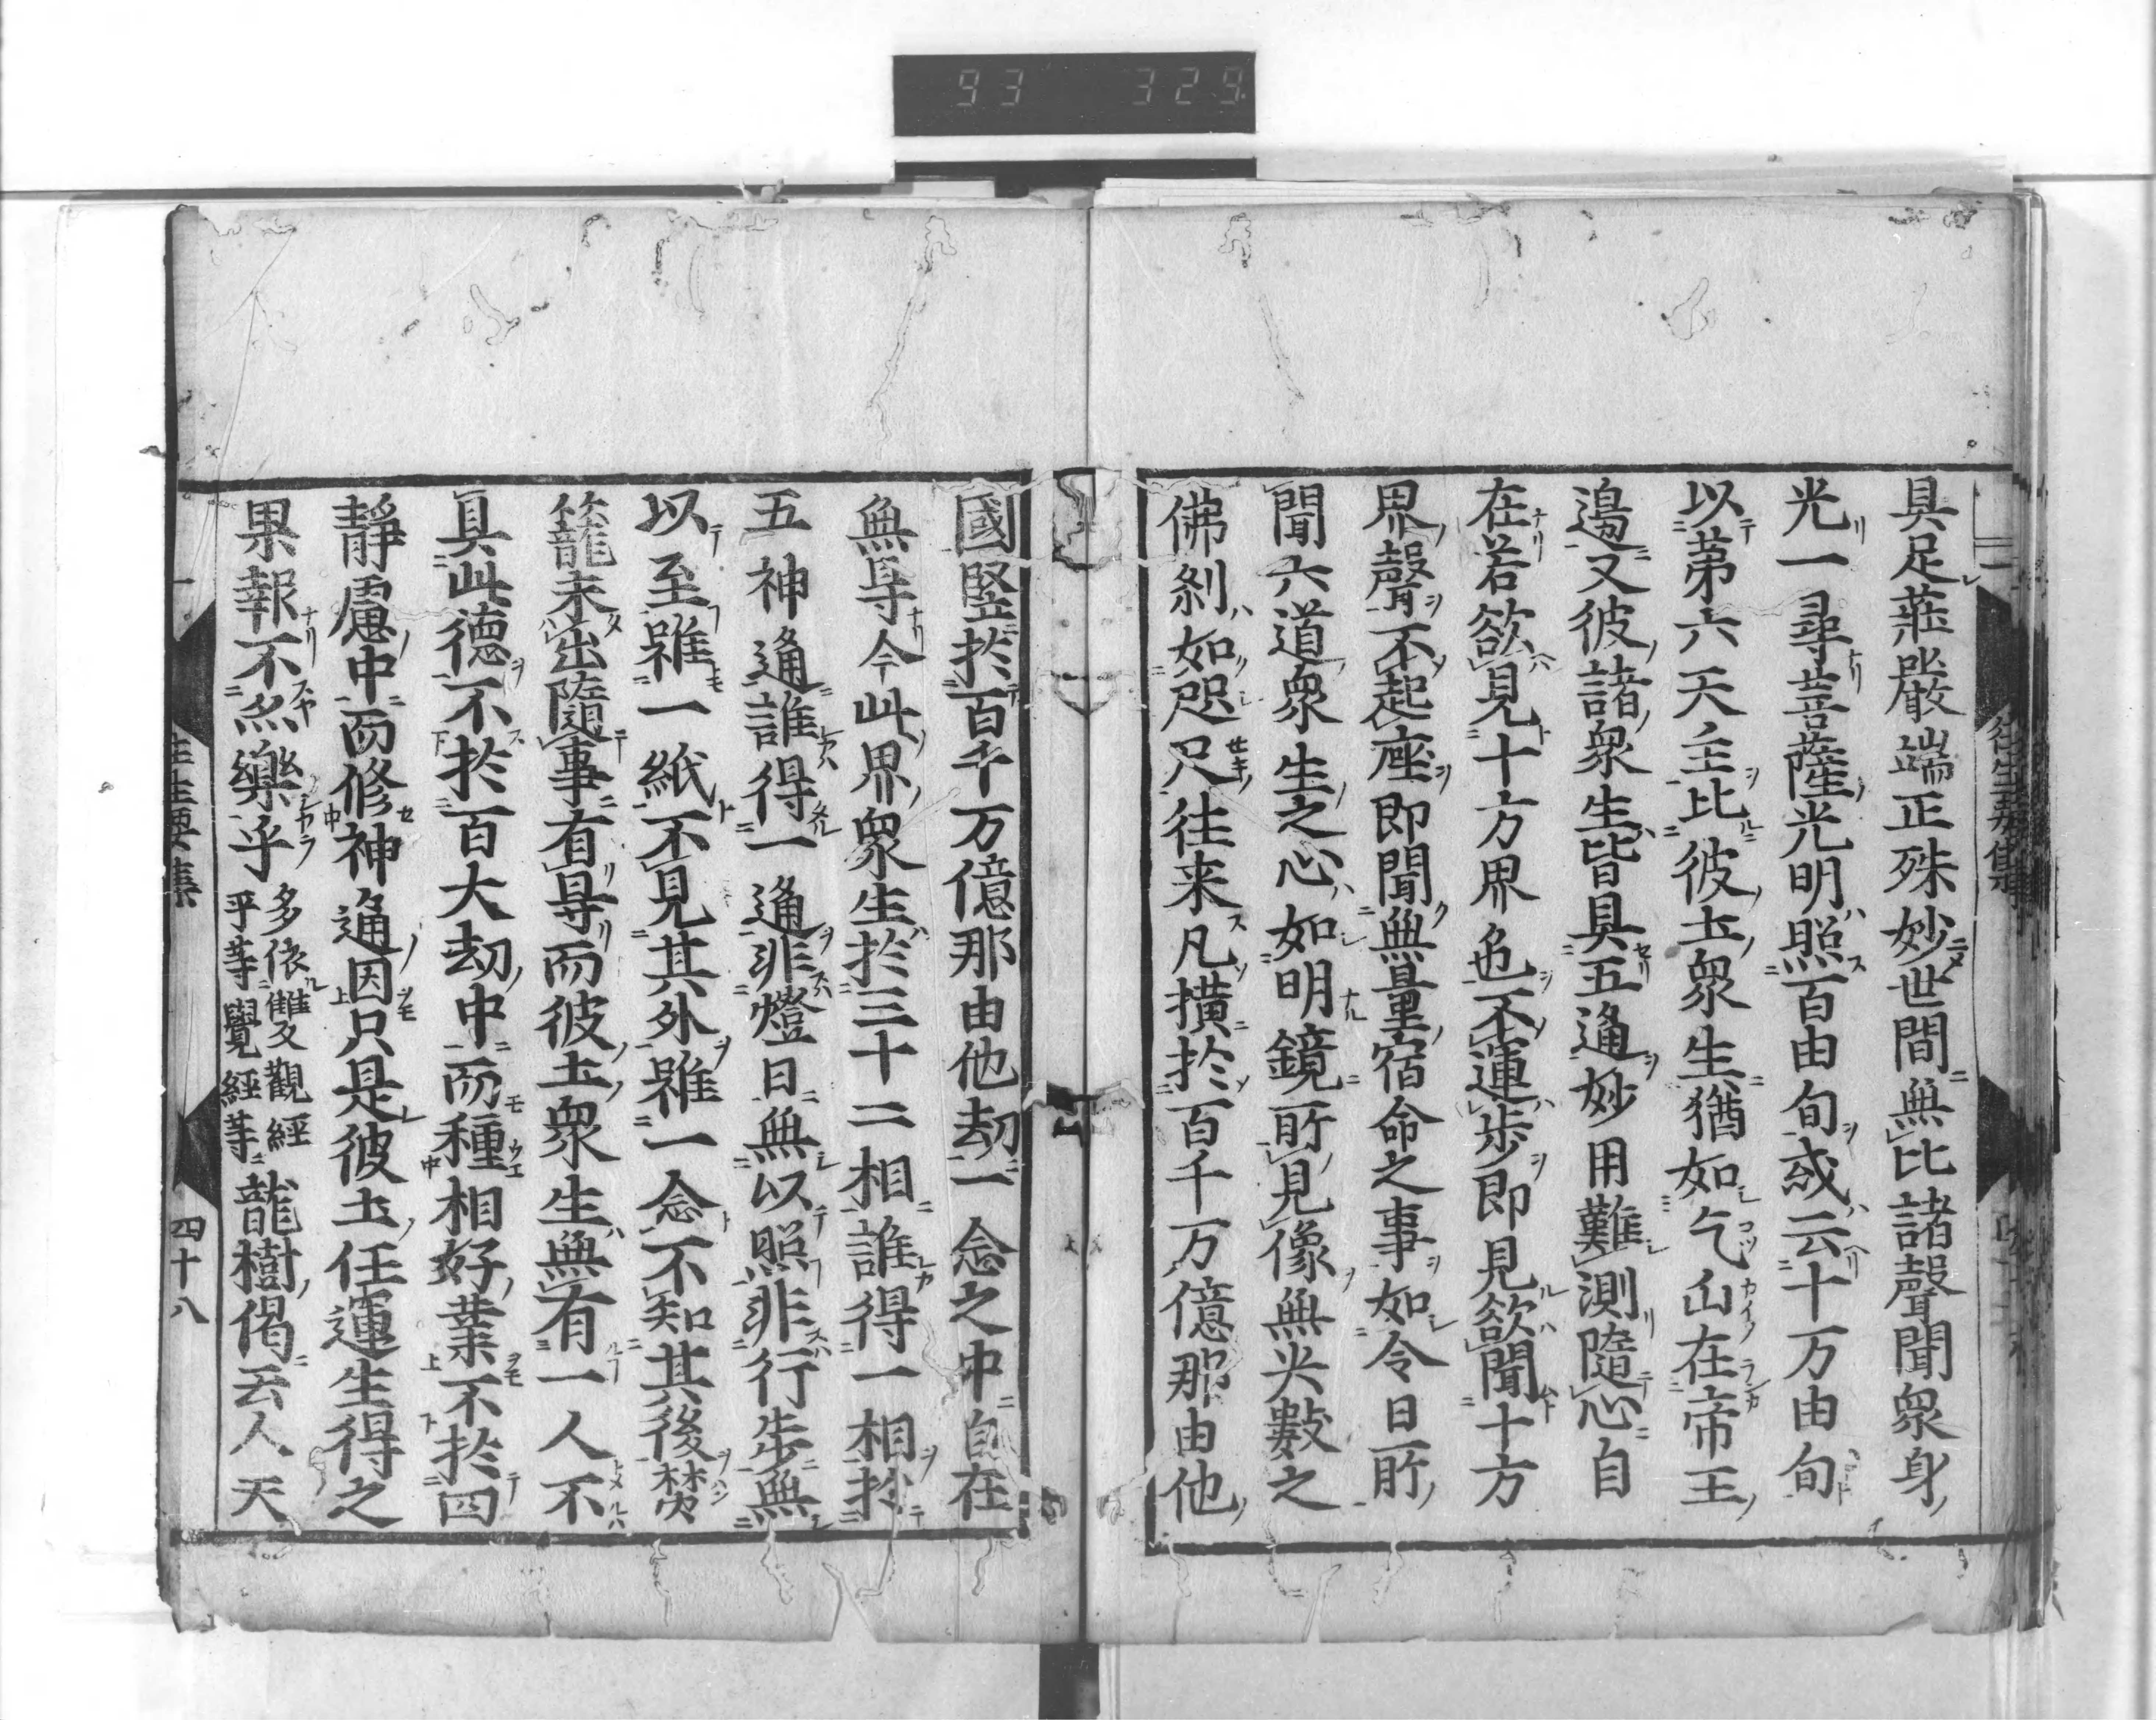 93 329
具足莊嚴端正殊妙世間無比諸聲聞衆身
光一尋菩薩光明照百由旬或云十万由旬
以第六天主比彼土衆生猶如乞丐在帝王
邊又彼諸衆生皆具五通妙用難測隨心自
在若欲見十方界色不運步即見欲聞十方
界聲不起座即聞無量宿命之事如今日所
聞六道衆生之心如明鏡所見像無央數之
佛刹如咫尺往来凡橫於百千万億那由他
國竪於百千万億那由他劫一念之中自在
無㝵今此界衆生於三十二相誰得一相於
五神通誰得一通非燈日無以照非行步無
以至雖一紙不見其外雖一念不知其後樊
籠未出隨事有㝵而彼土衆生無有一人不
具此德不於百大劫中而種相好業不於四
靜慮中而修神通因只是彼土任運生得之
果報不亦樂乎多依雙觀經
平等覺經等龍樹偈云人天
往生要集 四十八